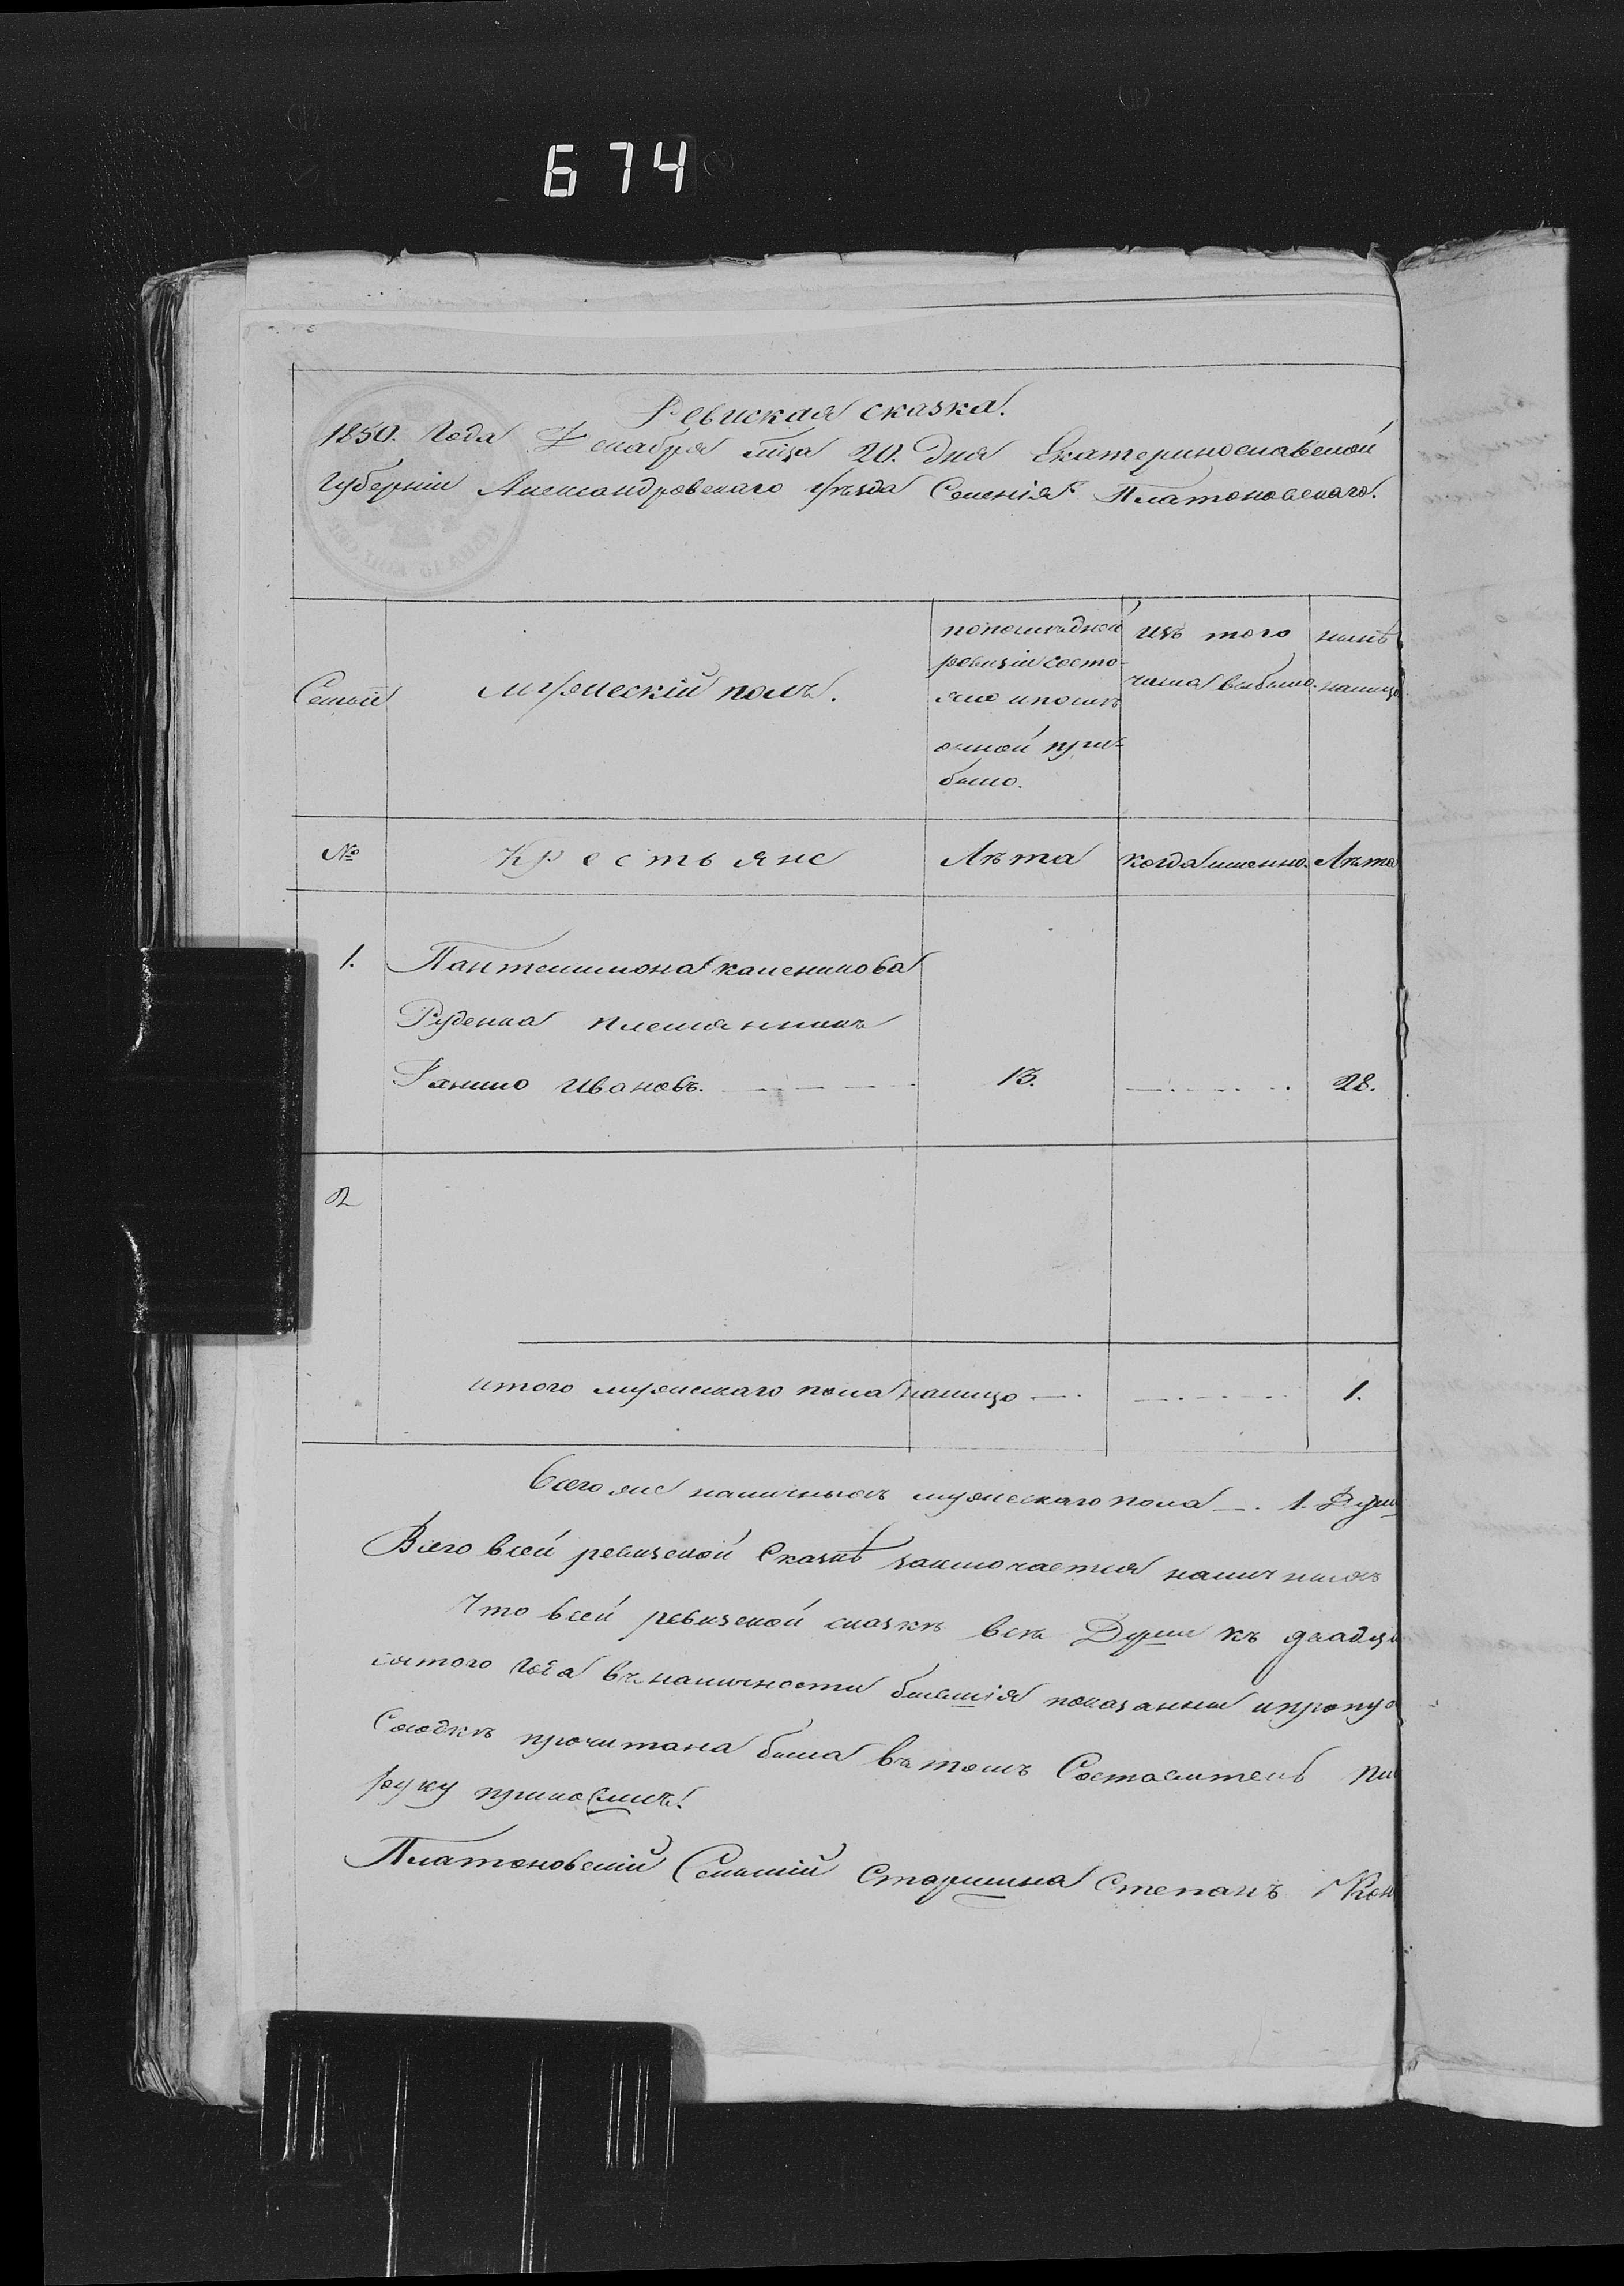 674
Ревиская сказка.
1850. Года Декабря мѣца 20. Дня Екатеринославской
Губерніи Александровскаго уѣзда Селенія Платоновскаго.
Семьи
мужескій полъ.
попослѣдней
ревизіи состо-
яло и послѣ
оной при-
было.
изъ того
числа выбыло.
нынѣ
налицо
№
Крестьяне
Лѣта
когда именно.
Лѣта
1.
Пантелимона каленикова
Руденка племянникъ
Ивановъ.
13.
28.
2
итого мужескаго пола налицо
1.
Всего же наличныхъ мужескаго пола — . 1. Душ
Всего всей ревизской Сказкѣ заключается наличныхъ
Что всей ревизской сказкѣ всѣ Души къ двадца
сятого года въ наличности бывшія показанны и пропу
Сходкѣ прочитана была въ томъ Составитель
руку приложилъ.
Платоновскій Сельскій Старшина Степанъ Кон